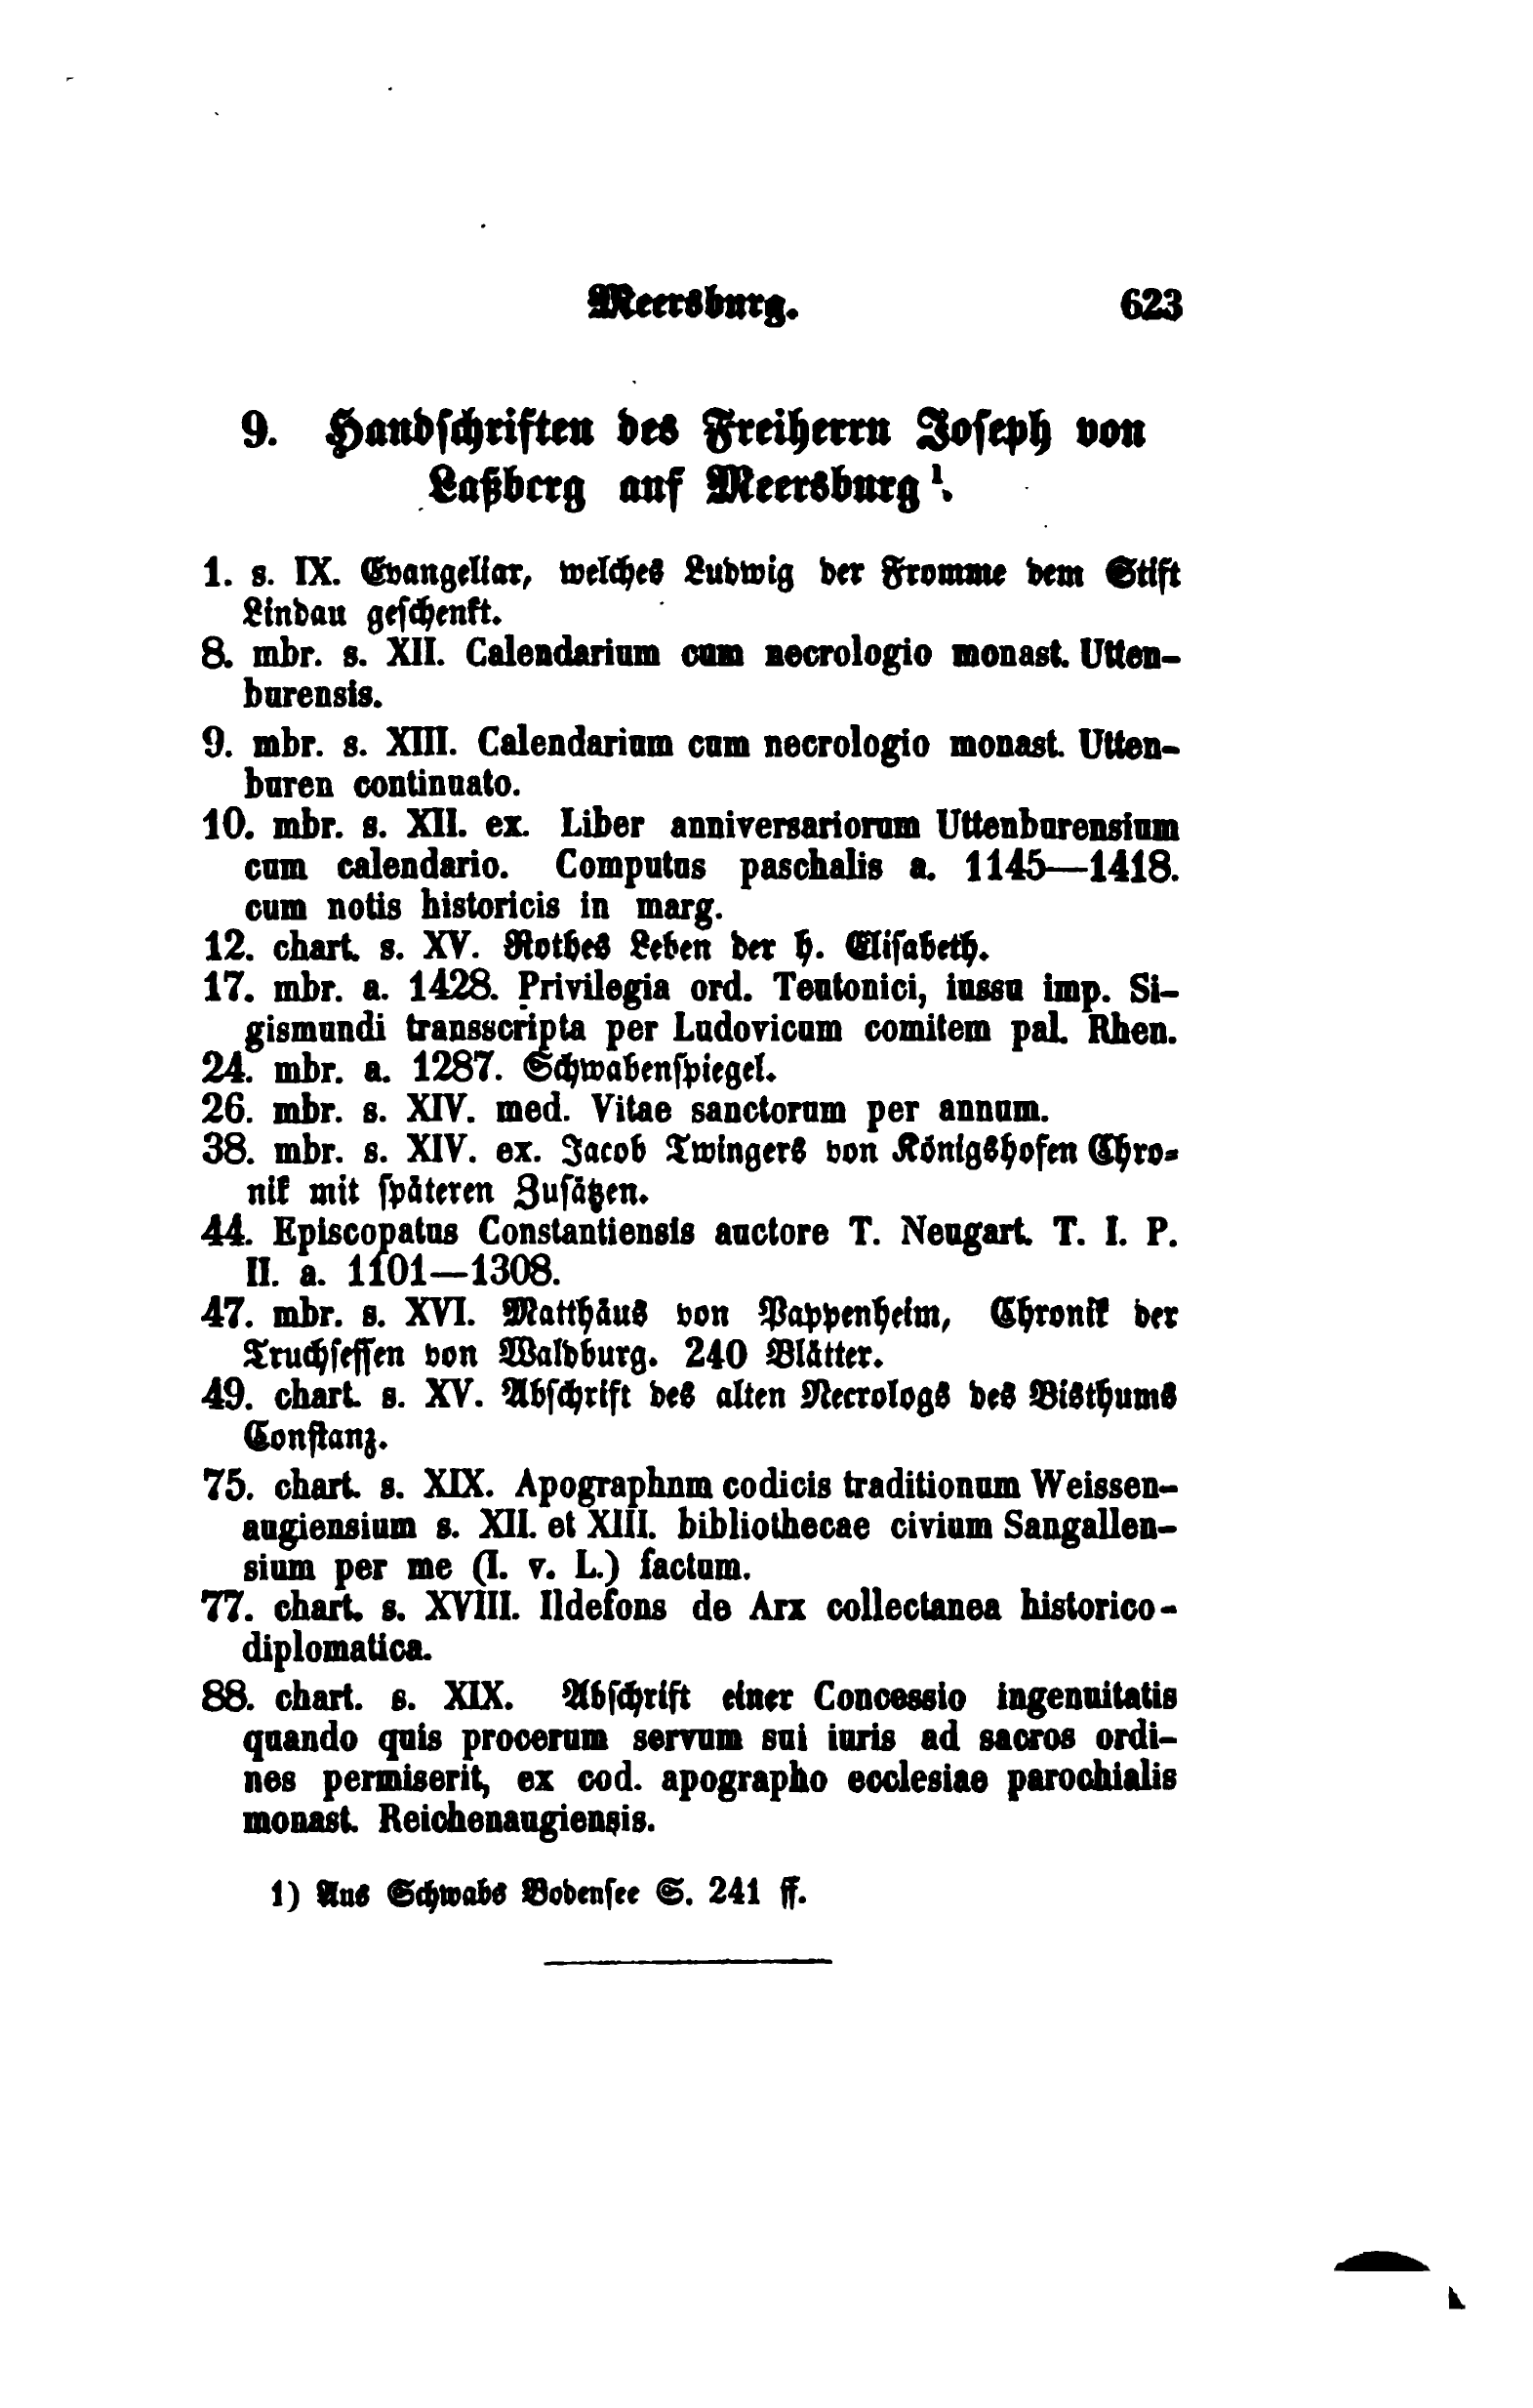 Meersburg. 623
9. Handschriften des Freiherrn Joseph von
Laßberg auf Meersburg¹.
1. s. IX. Evangeliar, welches Ludwig der Fromme dem Stift
Lindau geschenkt.
8. mbr. s. XII. Calendarium cum necrologio monast. Utten-
burensis.
9. mbr. s. XIII. Calendarium cum necrologio monast. Utten-
buren continuato.
10. mbr. s. XII. ex. Liber anniversariorum Uttenburensium
cum calendario. Computus paschalis a. 1145—1418.
cum notis historicis in marg.
12. chart. s. XV. Rothes Leben der h. Elisabeth.
17. mbr. a. 1428. Privilegia ord. Teutonici, iussu imp. Si-
gismundi transscripta per Ludovicum comitem pal. Rhen.
24. mbr. a. 1287. Schwabenspiegel.
26. mbr. s. XIV. med. Vitae sanctorum per annum.
38. mbr. s. XIV. ex. Jacob Twingers von Königshofen Chro-
nik mit späteren Zusätzen.
44. Episcopatus Constantiensis auctore T. Neugart. T. I. P.
II. a. 1101—1308.
47. mbr. s. XVI. Matthäus von Pappenheim, Chronik der
Truchsessen von Waldburg. 240 Blätter.
49. chart. s. XV. Abschrift des alten Necrologs des Bisthums
Constanz.
75. chart. s. XIX. Apographum codicis traditionum Weissen-
augiensium s. XII. et XIII. bibliothecae civium Sangallen-
sium per me (I. v. L.) factum.
77. chart. s. XVIII. Ildefons de Arx collectanea historico-
diplomatica.
88. chart. s. XIX. Abschrift einer Concessio ingenuitatis
quando quis procerum servum sui iuris ad sacros ordi-
nes permiserit, ex cod. apographo ecclesiae parochialis
monast. Reichenaugiensis.
1) Aus Schwabs Bodensee S. 241 ff.